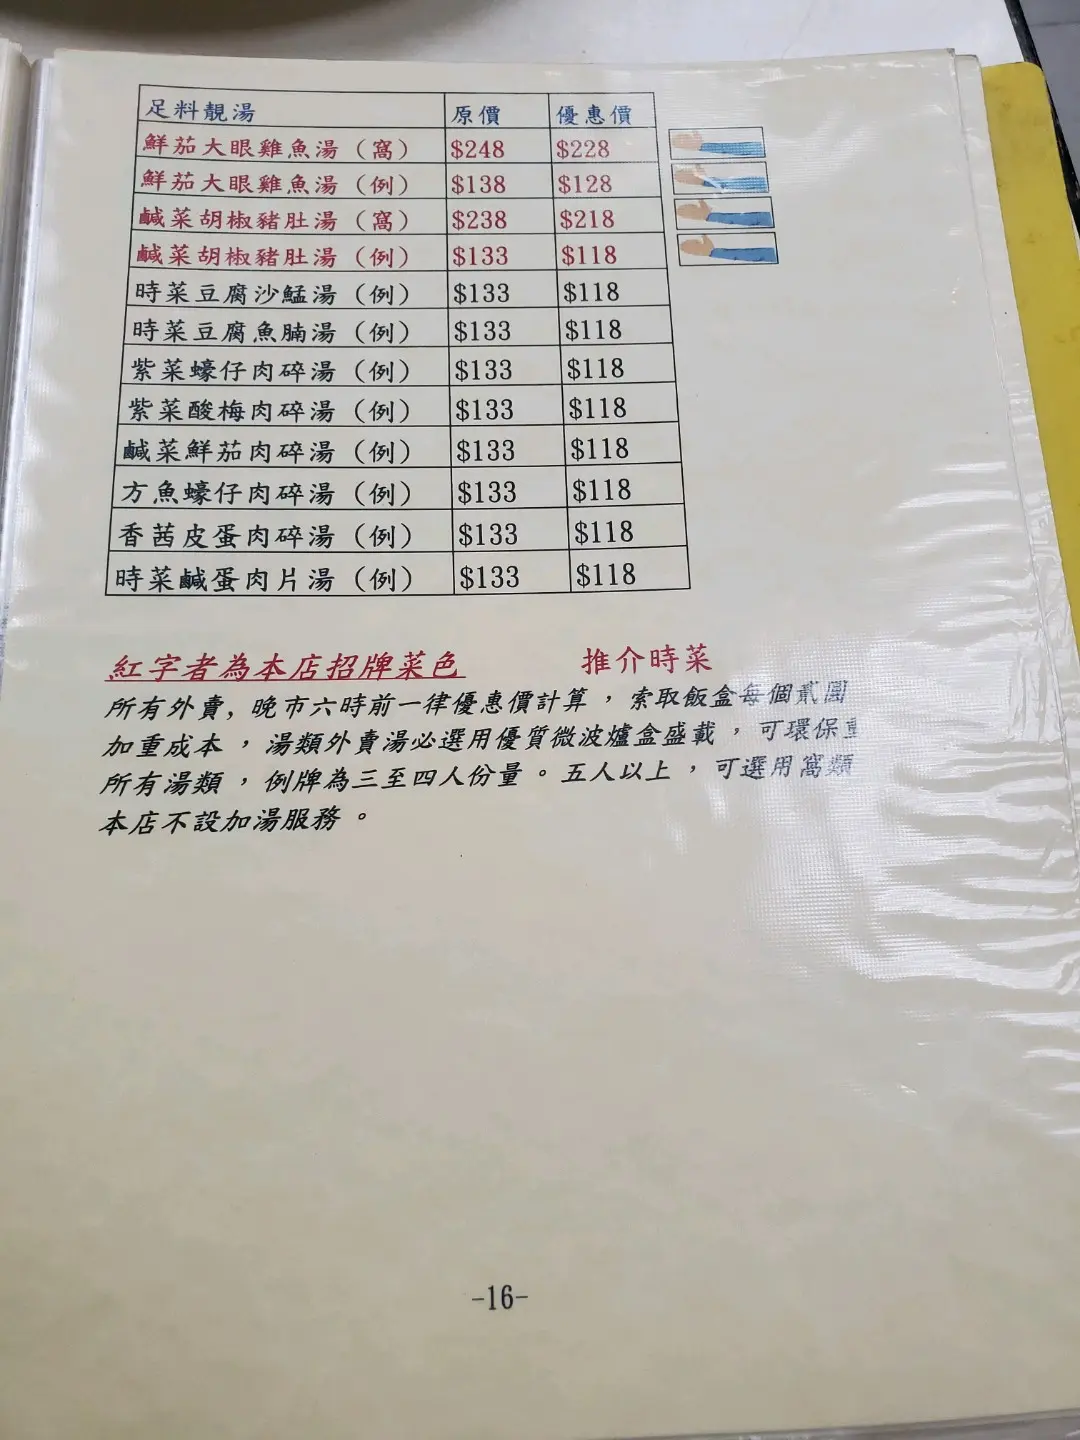 足料靚湯 原價 優惠價
鮮茄大眼雞魚湯（窩） $248 $228
鮮茄大眼雞魚湯（例） $138 $128
鹹菜胡椒豬肚湯（窩） $238 $218
鹹菜胡椒豬肚湯（例） $133 $118
時菜豆腐沙鯭湯（例） $133 $118
時菜豆腐魚腩湯（例） $133 $118
紫菜蠔仔肉碎湯（例） $133 $118
紫菜酸梅肉碎湯（例） $133 $118
鹹菜鮮茄肉碎湯（例） $133 $118
方魚蠔仔肉碎湯（例） $133 $118
香茜皮蛋肉碎湯（例） $133 $118
時菜鹹蛋肉片湯（例） $133 $118
紅字者為本店招牌菜色 推介時菜
所有外賣, 晚市六時前一律優惠價計算，索取飯盒每個貳圓
加重成本，湯類外賣湯必選用優質微波爐盒盛載，可環保
所有湯類，例牌為三至四人份量。五人以上，可選用窩類
本店不設加湯服務。
-16-